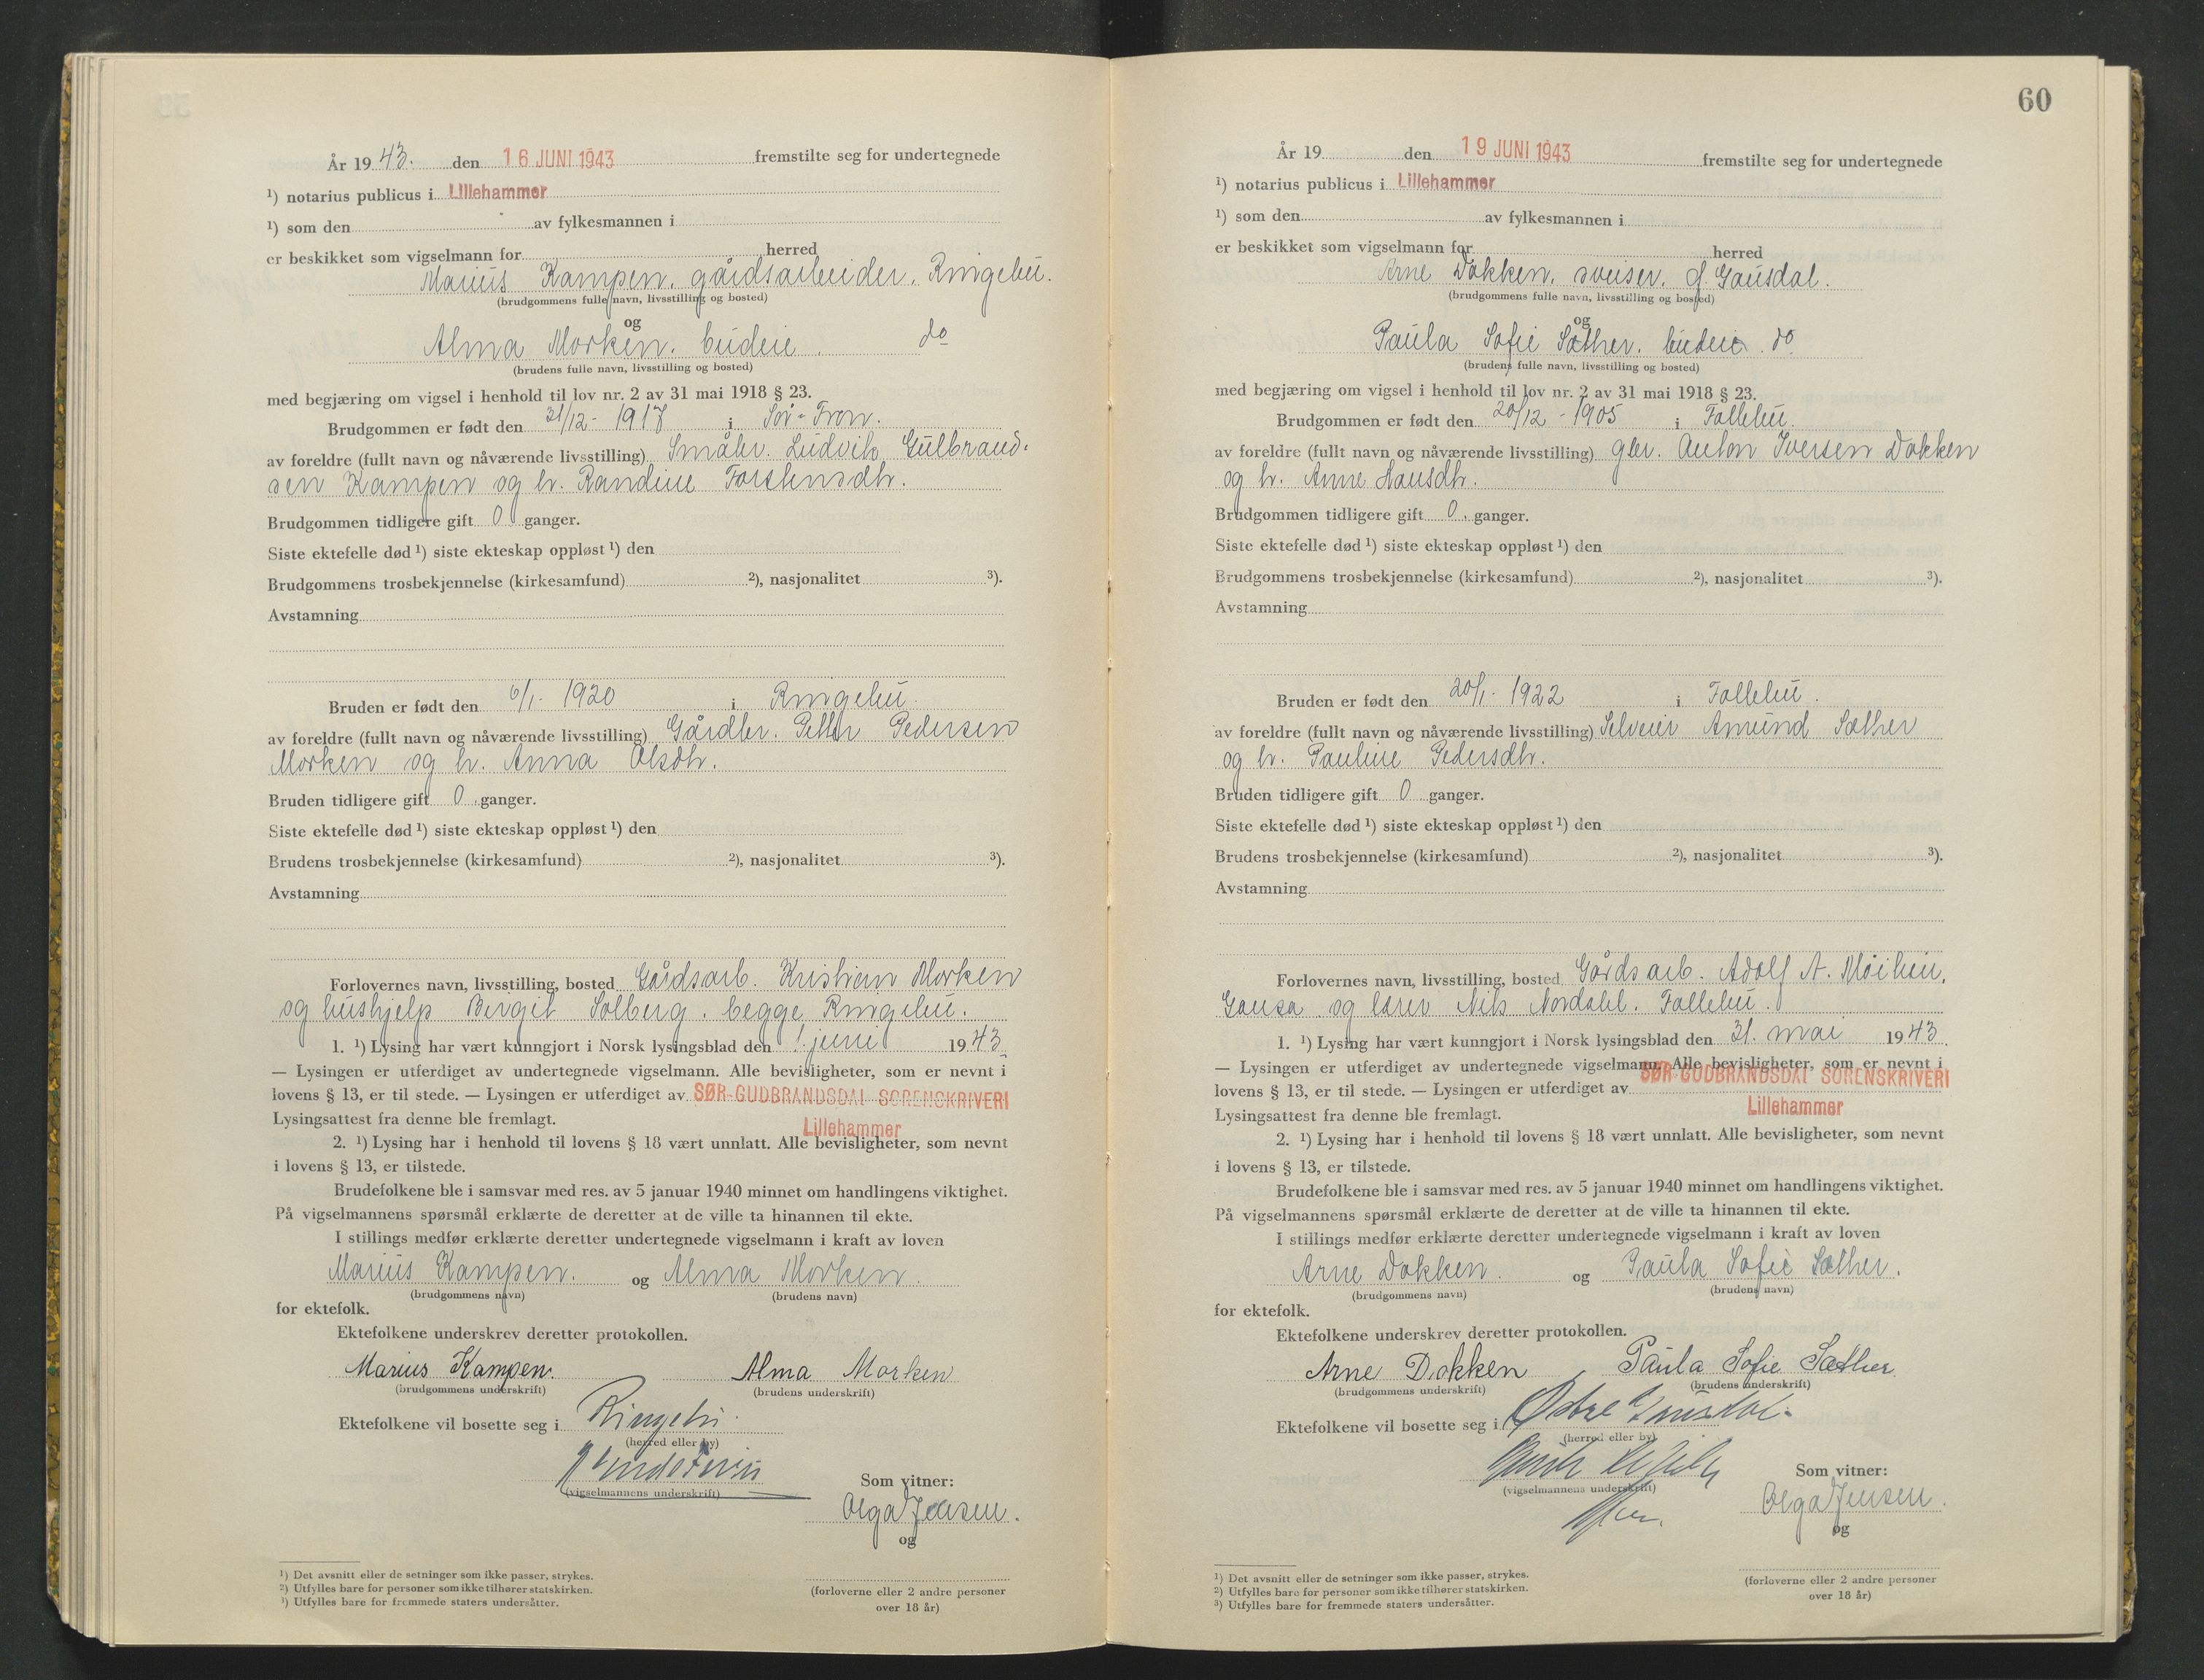 År 19 43. den 16 JUNI 1943 fremstilte seg for undertegnede
¹) notarius publicus i Lillehammer
¹) som den av fylkesmannen i
er beskikket som vigselmann for herred
Marius Kampen, gårdsarbeider, Ringebu.
(brudgommens fulle navn, livsstilling og bosted)
og
Alma Morken, budeie, do
(brudens fulle navn, livsstilling og bosted)
med begjæring om vigsel i henhold til lov nr. 2 av 31 mai 1918 § 23.
Brudgommen er født den 31/12- 1917 i Sør-Fron.
av foreldre (fullt navn og nåværende livsstilling) Småbr. Ludvik Gulbrand-
sen Kampen og h. Randine Torstensdtr.
Brudgommen tidligere gift 0 ganger.
Siste ektefelle død ¹) siste ekteskap oppløst ¹) den
Brudgommens trosbekjennelse (kirkesamfund) ²), nasjonalitet ³).
Avstamning
Bruden er født den 6/1- 1920 i Ringebu.
av foreldre (fullt navn og nåværende livsstilling) Gårdbr. Petter Pedersen
Morken og h. Anna Olsdtr.
Bruden tidligere gift 0 ganger.
Siste ektefelle død ¹) siste ekteskap oppløst ¹) den
Brudens trosbekjennelse (kirkesamfund) ²), nasjonalitet ³).
Avstamning
Forlovernes navn, livsstilling, bosted Gårdsarb. Kristian Morken
og hushjelp Birgit Solberg, begge Ringebu.
1. ¹) Lysing har vært kunngjort i Norsk lysingsblad den 1. juni 19 43
— Lysingen er utferdiget av undertegnede vigselmann. Alle bevisligheter, som er nevnt i
lovens § 13, er til stede. — Lysingen er utferdiget av SØR-GUDBRANDSDAL SORENSKRIVERI
Lysingsattest fra denne ble fremlagt.
Lillehammer
2. ¹) Lysing har i henhold til lovens § 18 vært unnlatt. Alle bevisligheter, som nevnt
i lovens § 13, er tilstede.
Brudefolkene ble i samsvar med res. av 5 januar 1940 minnet om handlingens viktighet.
På vigselmannens spørsmål erklærte de deretter at de ville ta hinannen til ekte.
I stillings medfør erklærte deretter undertegnede vigselmann i kraft av loven
Marius Kampen. og Alma Morken.
(brudgommens navn) (brudens navn)
for ektefolk.
Ektefolkene underskrev deretter protokollen.
Marius Kampen. Alma Morken
(brudgommens underskrift) (brudens underskrift)
Ektefolkene vil bosette seg i Ringebu.
(herred eller by)
(vigselmannens underskrift)
Som vitner:
Olga Jensen.
og
(forloverne eller 2 andre personer
over 18 år)
¹) Det avsnitt eller de setninger som ikke passer, strykes.
²) Utfylles bare for personer som ikke tilhører statskirken.
³) Utfylles bare for fremmede staters undersåtter.
60
År 19 den 19 JUNI 1943 fremstilte seg for undertegnede
¹) notarius publicus i Lillehammer
¹) som den av fylkesmannen i
er beskikket som vigselmann for herred
Arne Dokken, sveiser, Ø. Gausdal.
(brudgommens fulle navn, livsstilling og bosted)
og
Paula Sofie Sæther, budeie, do
(brudens fulle navn, livsstilling og bosted)
med begjæring om vigsel i henhold til lov nr. 2 av 31 mai 1918 § 23.
Brudgommen er født den 20/12 - 1905 i Follebu.
av foreldre (fullt navn og nåværende livsstilling) gbr. Anton Iversen Dokken
og h. Anne Hansdtr.
Brudgommen tidligere gift 0. ganger.
Siste ektefelle død ¹) siste ekteskap oppløst ¹) den
Brudgommens trosbekjennelse (kirkesamfund) ²), nasjonalitet ³).
Avstamning
Bruden er født den 20/1- 1922 i Follebu.
av foreldre (fullt navn og nåværende livsstilling) Selveier Amund Sæther
og h. Pauline Pedersdtr.
Bruden tidligere gift 0 ganger.
Siste ektefelle død ¹) siste ekteskap oppløst ¹) den
Brudens trosbekjennelse (kirkesamfund) ²), nasjonalitet ³).
Avstamning
Forlovernes navn, livsstilling, bosted Gårdsarb. Adolf A.
Gausa og Nils Nordahl. Follebu.
1. ¹) Lysing har vært kunngjort i Norsk lysingsblad den 31. mai 19 43.
— Lysingen er utferdiget av undertegnede vigselmann. Alle bevisligheter, som er nevnt i
lovens § 13, er til stede. — Lysingen er utferdiget av SØR-GUDBRANDSDAL SORENSKRIVERI
Lysingsattest fra denne ble fremlagt.
Lillehammer
2. ¹) Lysing har i henhold til lovens § 18 vært unnlatt. Alle bevisligheter, som nevnt
i lovens § 13, er tilstede.
Brudefolkene ble i samsvar med res. av 5 januar 1940 minnet om handlingens viktighet.
På vigselmannens spørsmål erklærte de deretter at de ville ta hinannen til ekte.
I stillings medfør erklærte deretter undertegnede vigselmann i kraft av loven
Arne Dokken. og Paula Sofie Sæther.
(brudgommens navn) (brudens navn)
for ektefolk.
Ektefolkene underskrev deretter protokollen.
Arne Dokken Paula Sofie Sæther
(brudgommens underskrift) (brudens underskrift)
Ektefolkene vil bosette seg i Østre Gausdal.
(herred eller by)
(vigselmannens underskrift)
Som vitner:
Olga Jensen.
og
(forloverne eller 2 andre personer
over 18 år)
¹) Det avsnitt eller de setninger som ikke passer, strykes.
²) Utfylles bare for personer som ikke tilhører statskirken.
³) Utfylles bare for fremmede staters undersåtter.